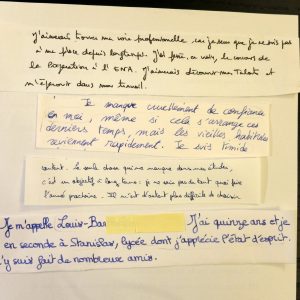 J'aimerais trouver ma voie professionnelle, car je sens que je ne suis pas
à ma place depuis longtemps. J'ai passé, en vain, le concours
de la Magistrature à l'ENA. J'aimerais découvrir mes Talents et
m'épanouir dans mon travail.
Je manque cruellement de confiance
en moi, même si cela s'arrange ces
derniers temps, mais les vieilles habitudes
reviennent rapidement. Je suis timide
content. La seule chose qui me manque dans mes études,
c'est un objectif à long terme : je ne sais pas du tout quoi faire
l'année prochaine. Il m'est d'autant plus difficile de choisir
Je m'appelle Louis-Ba J'ai quinze ans et je
en seconde à Stanislas, lycée dont j'apprécie l'état d'esprit.
j'y suis fait de nombreux amis.